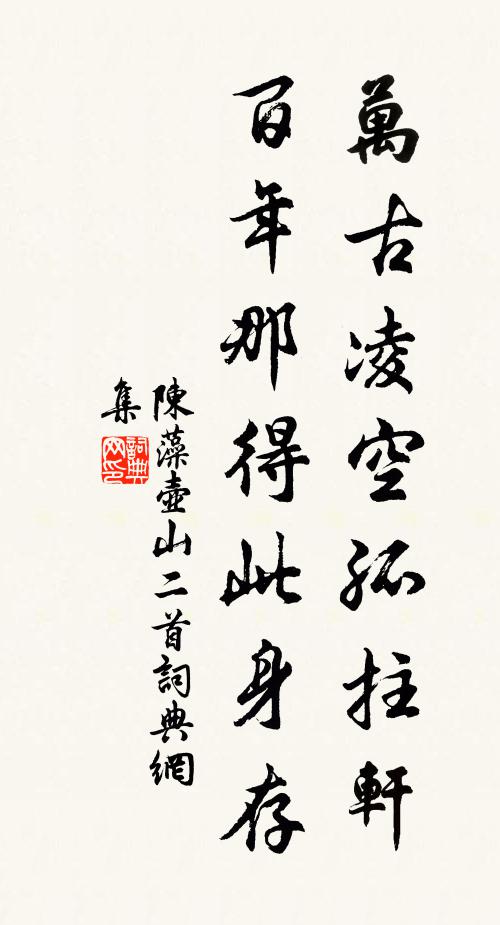 萬古凌空孤拄軒
百年那得此身存
陳藻壺山二首詞典網
集
詞典網印